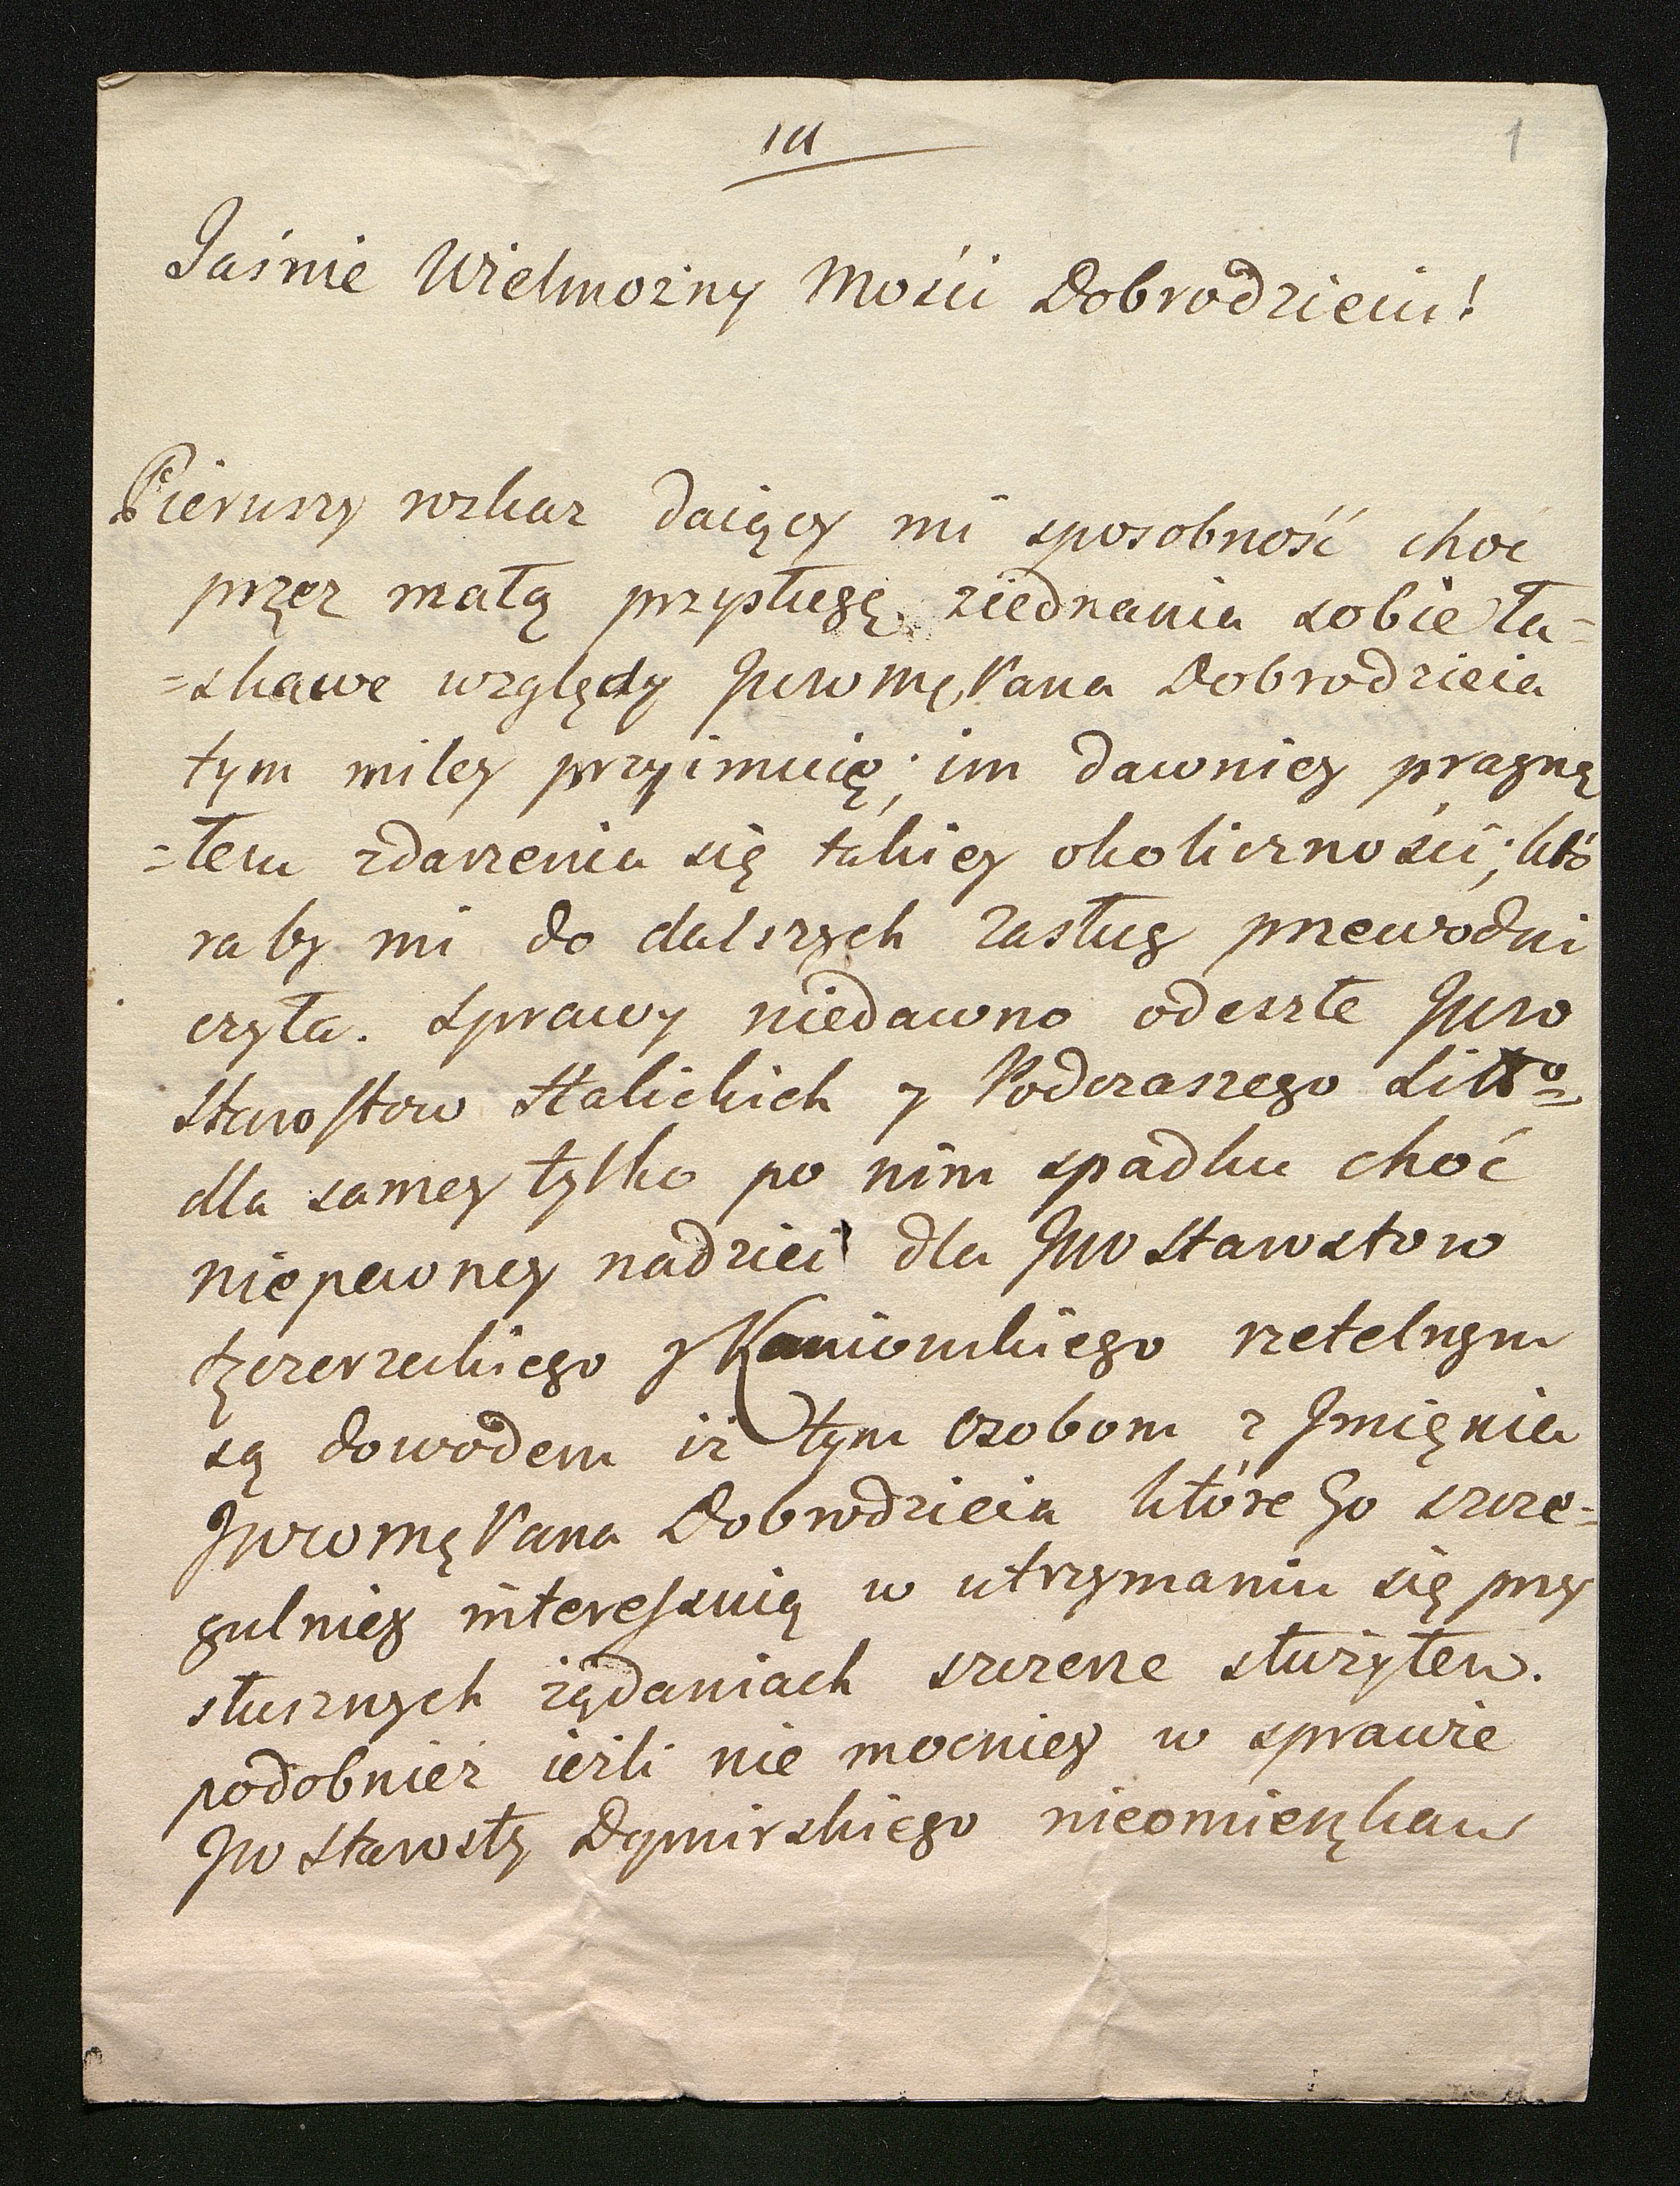 1
Jaśnie Wielmożny Mości Dobrodzieiu!
Pierwszy rozkaz daiący mi sposobność choć
przez małą przysługę ziednania sobie ła=
=skawe względy JWWMę Pana Dobrodzieia
tym miley przyimuię; im dawniey pragną
=łem zdarzenia się takiey okoliczności; któ
raby mi do dalszych zasług przewodni
czyła. Sprawy niedawno odeszłe JWW
Starostow Halickich y Podczaszego Litto
dla samey tylko po nim spadku choć
niepewney nadziei dla JWW Starostow
Czererzeckiego y Kaniowskiego rzetelnym
są dowodem iż tym Osobom z Jmięnia
JWWMę Pana Dobrodzieia które Go szcze=
gulniey interessuią w utrzymaniu się przy
słusznych żądaniach szczerze służyłem.
podobnież ieżli nie mocniey w sprawie
JW Starosty Dymirskiego nieomieszkam